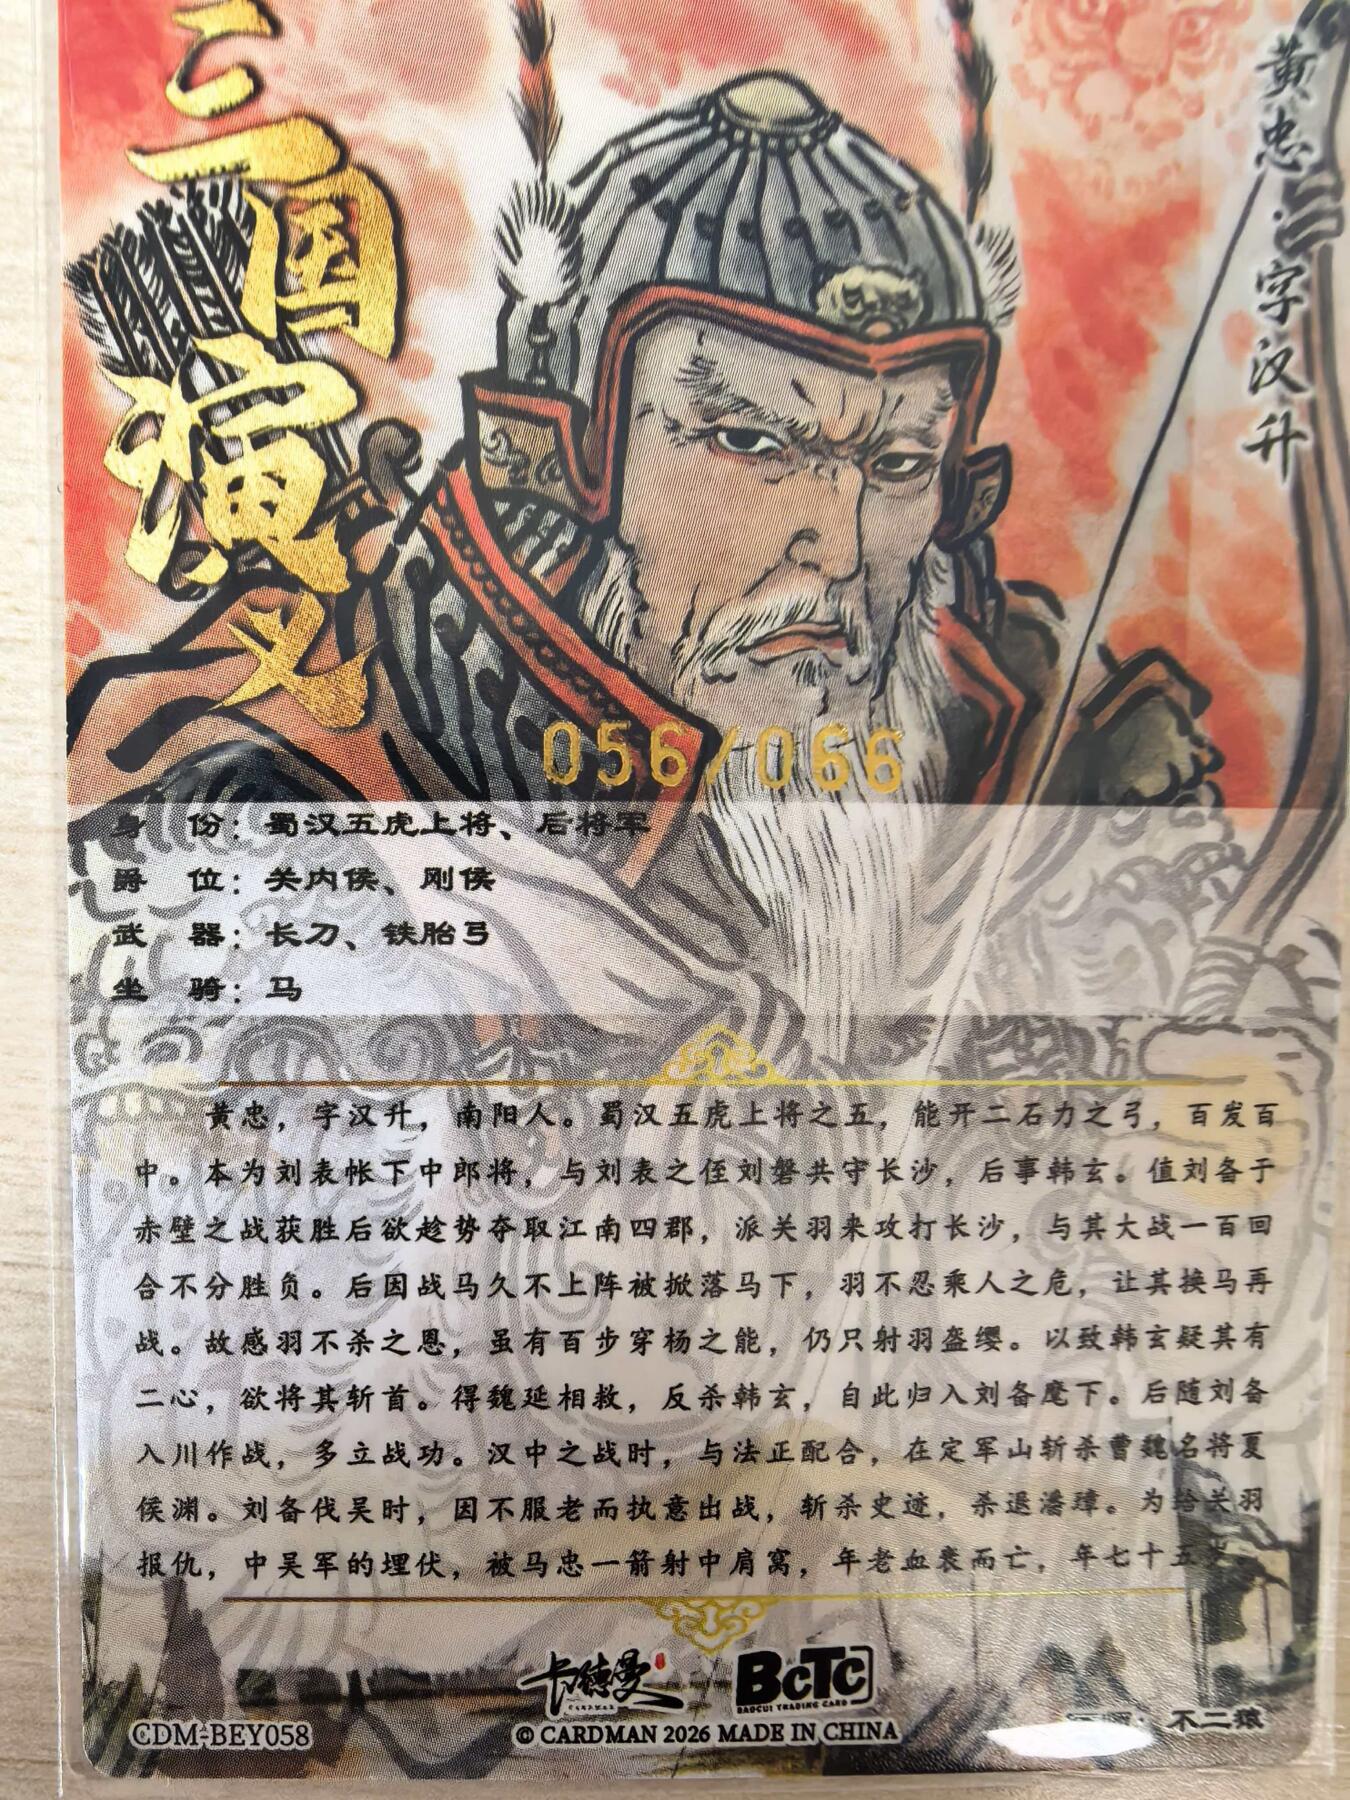 三国演义
黄忠·字汉升
056/066
身 份：蜀汉五虎上将、后将军
爵 位：关内侯、刚侯
武 器：长刀、铁胎弓
坐 骑：马
黄忠，字汉升，南阳人。蜀汉五虎上将之五，能开二石力之弓，百发百
中。本为刘表帐下中郎将，与刘表之侄刘磐共守长沙，后事韩玄。值刘备于
赤壁之战获胜后欲趁势夺取江南四郡，派关羽来攻打长沙，与其大战一百回
合不分胜负。后因战马久不上阵被掀落马下，羽不忍乘人之危，让其换马再
战。故感羽不杀之恩，虽有百步穿杨之能，仍只射羽盔缨。以致韩玄疑其有
二心，欲将其斩首。得魏延相救，反杀韩玄，自此归入刘备麾下。后随刘备
入川作战，多立战功。汉中之战时，与法正配合，在定军山斩杀曹魏名将夏
侯渊。刘备伐吴时，因不服老而执意出战，斩杀史迹，杀退潘璋。为给关羽
报仇，中吴军的埋伏，被马忠一箭射中肩窝，年老血衰而亡，年七十五
卡德曼
CARDMAN
BCTC
BAOCUI TRADING CARD
CDM-BEY058
© CARDMAN 2026 MADE IN CHINA
不二猿